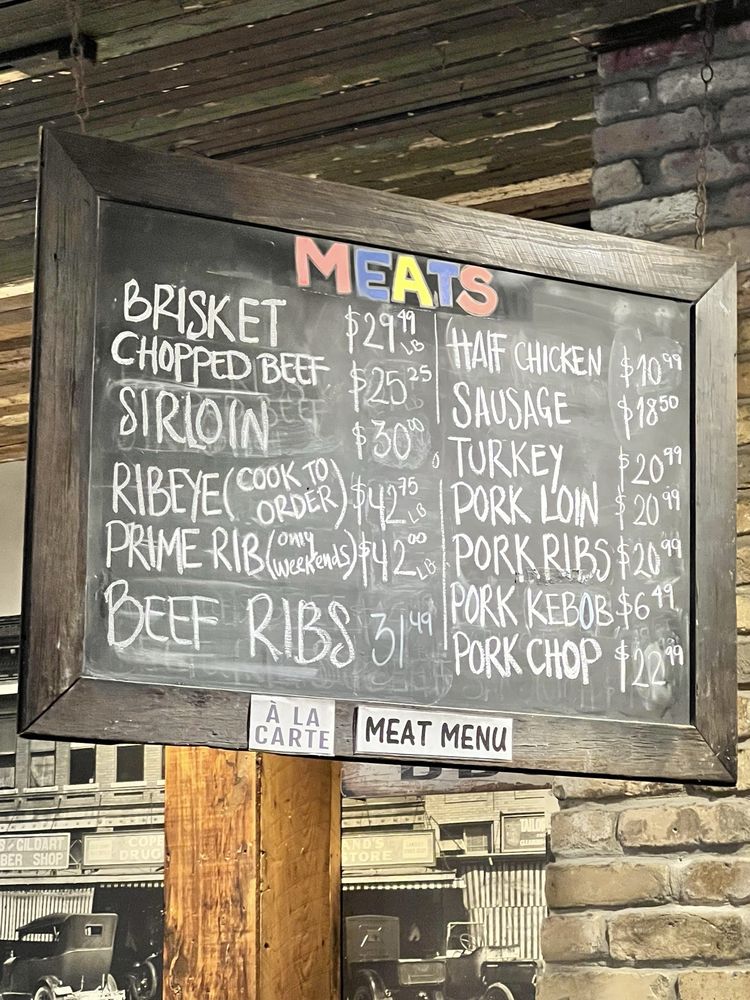 MEATS
BRISKET $29.49 LB
CHOPPED BEEF $25.25
SIRLOIN $30.00
RIBEYE (COOK TO ORDER) $42.75 LB
PRIME RIB (only weekends) $42.00 LB
BEEF RIBS 31.49
HALF CHICKEN $10.99
SAUSAGE $18.50
TURKEY $20.99
PORK LOIN $20.99
PORK RIBS $20.99
PORK KEBOB $6.49
PORK CHOP $22.99
À LA
CARTE
MEAT MENU
GILDART
BER SHOP
DRUG
STORE